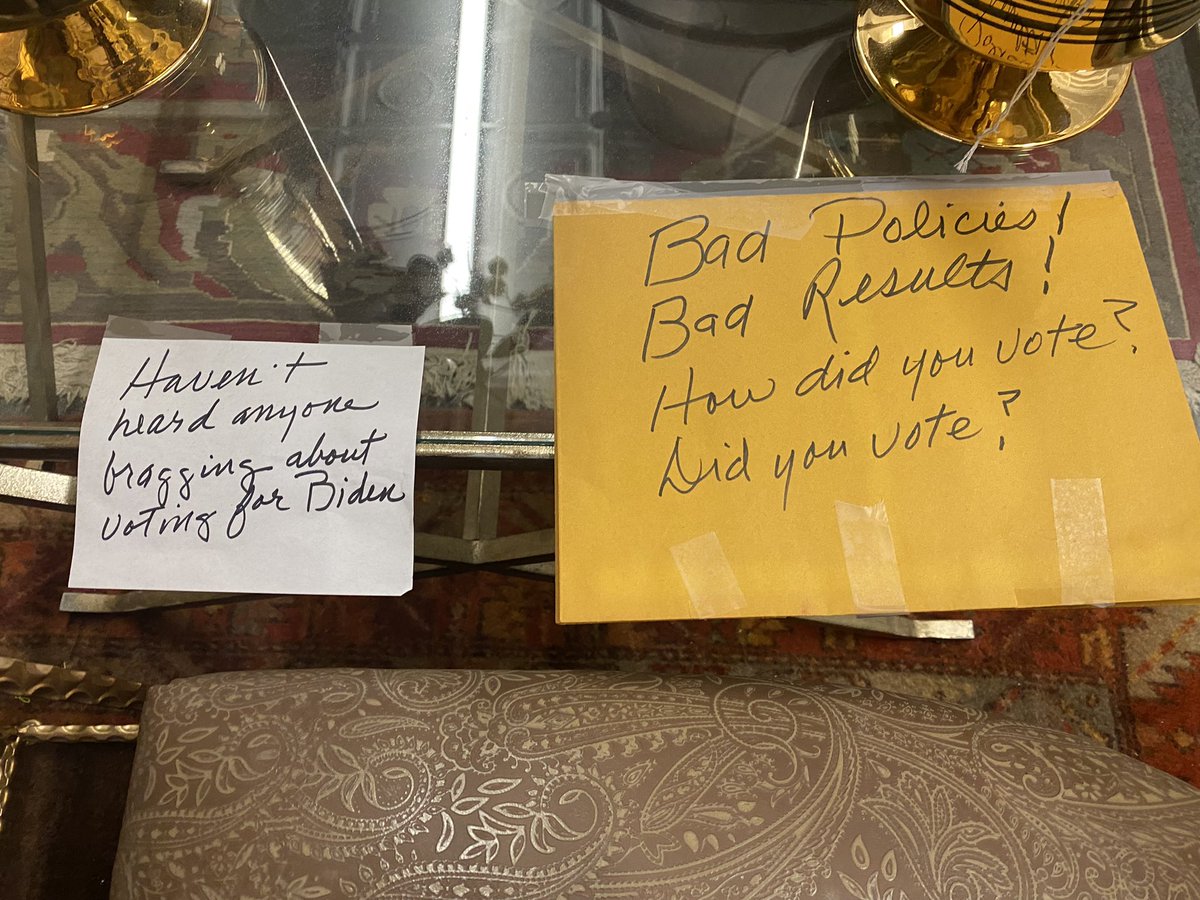 Haven't
heard anyone
bragging about
voting for Biden
Bad Policies!
Bad Results!
How did you vote?
Did you vote?